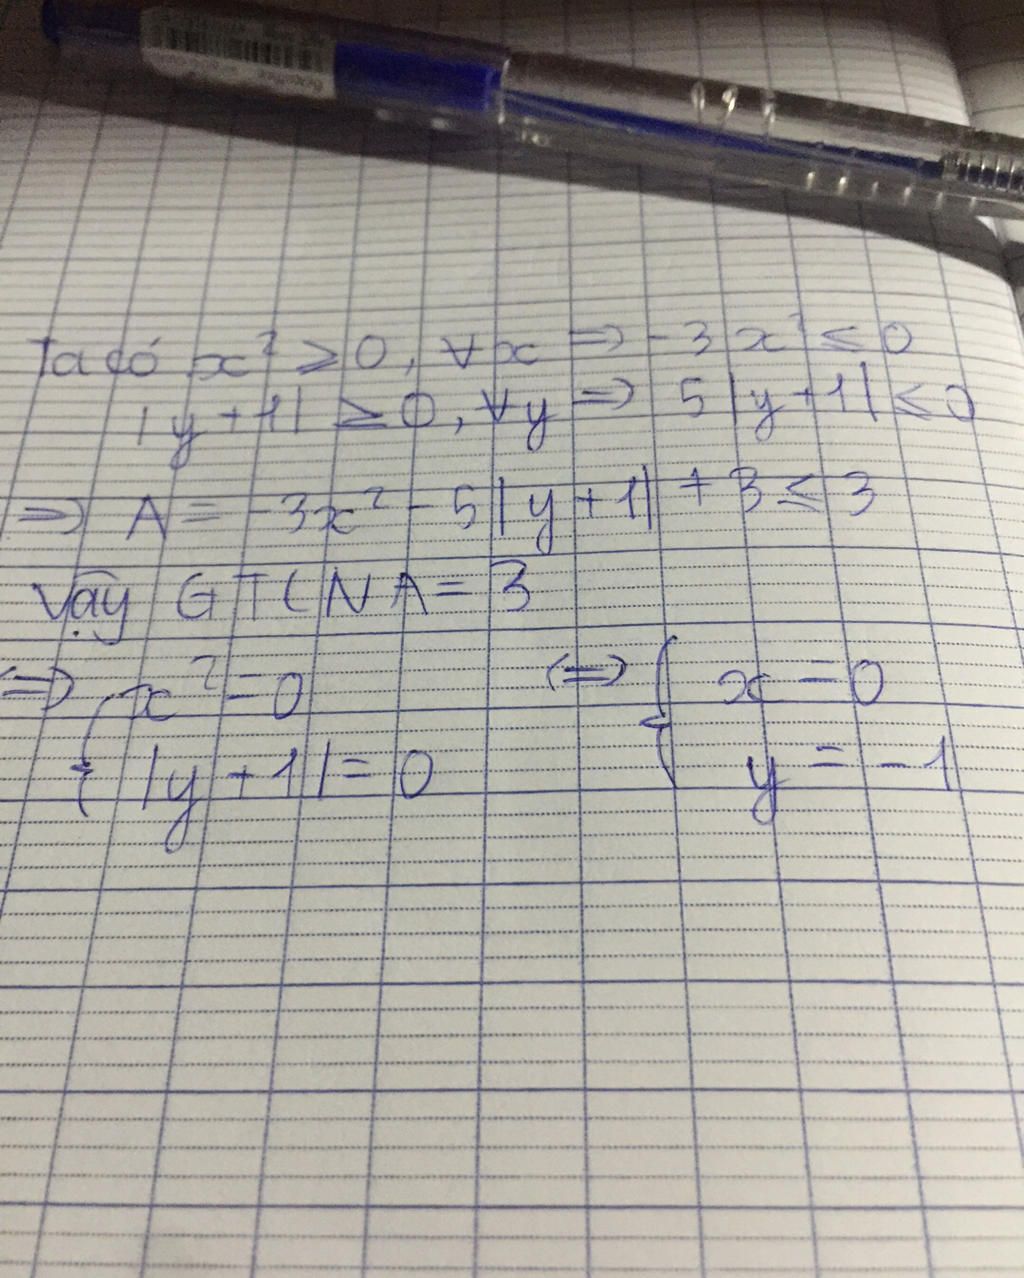 Ta có x² ≥ 0, ∀x ⇒ -3x² ≤ 0
|y+1| ≥ 0, ∀y ⇒ 5|y+1| ≤ 0
⇒ A = -3x² - 5|y+1| + 3 ≤ 3
Vậy GTLN A = 3
⇔ { x² = 0 ⇔ { x = 0
|y+1| = 0 y = -1